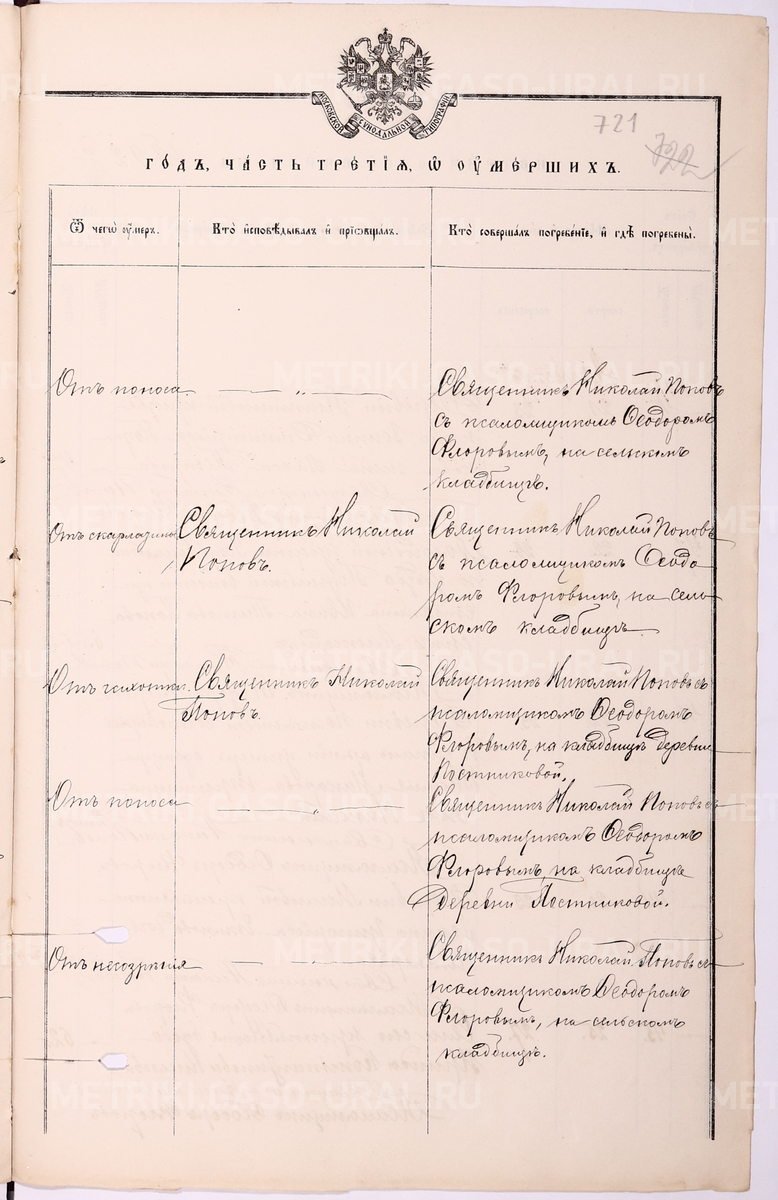 МОСКОВСКОЙ СѴНОДАЛЬНОЙ ТИПОГРАФІИ
721
722
ГО́ДЪ, ЧА́СТЬ ТРЕ́ТІѦ, Ѽ ОУ҆МЕ́РШИХЪ.
Ѿ чегѡ̀ оу҆́меръ.
Кто̀ и҆сповѣ́дывалъ и҆ прїѡбща́лъ.
Кто̀ соверша́лъ погребе́нїе, и҆ гдѣ̀ погребены̀.
Отъ поноса.
— „ —
Священникъ Николай Поповъ
съ псаломщикомъ Ѳеодоромъ
Флоровымъ, на сельскомъ
кладбищѣ.
Отъ скарлатины
Священникъ Николай
Поповъ.
Священникъ Николай Поповъ
съ псаломщикомъ Ѳеодо
ромъ Флоровымъ, на сель
скомъ кладбищѣ.
Отъ чихотки.
Священникъ Николай
Поповъ.
Священникъ Николай Поповъ съ
псаломщикомъ Ѳеодоромъ
Флоровымъ, на кладбищѣ деревни
Постниковой.
Отъ поноса
— „ —
Священникъ Николай Поповъ съ
псаломщикомъ Ѳеодоромъ
Флоровымъ, на кладбищѣ
деревни Постниковой.
Отъ несозрѣнія
— „ —
Священникъ Николай Поповъ съ
псаломщикомъ Ѳеодоромъ
Флоровымъ, на сельскомъ
кладбищѣ.
METRIKI.GASO-URAL.RU